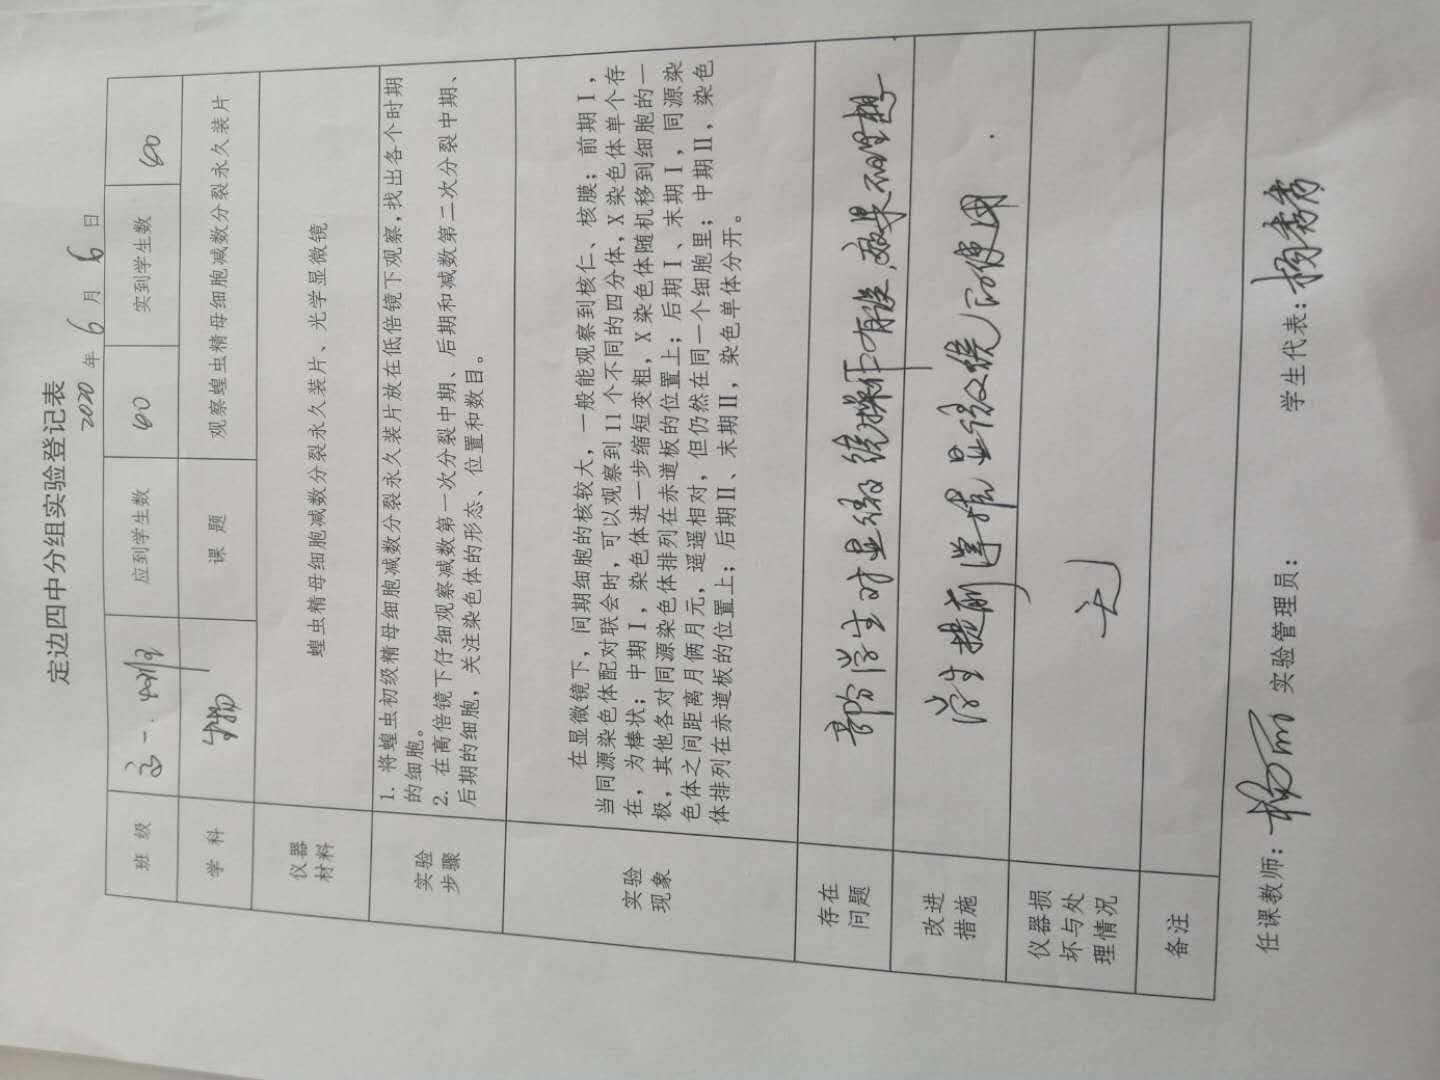 定边四中分组实验登记表
2020 年 6 月 6 日
班 级 高一.四班 应到学生数 60 实到学生数 60
学 科 生物 课 题 观察蝗虫精母细胞减数分裂永久装片
仪器
材料
蝗虫精母细胞减数分裂永久装片、光学显微镜
实验
步骤
1. 将蝗虫初级精母细胞减数分裂永久装片放在低倍镜下观察，找出各个时期
的细胞。
2. 在高倍镜下仔细观察减数第一次分裂中期、后期和减数第二次分裂中期、
后期的细胞，关注染色体的形态、位置和数目。
实验
现象
在显微镜下，间期细胞的核较大，一般能观察到核仁、核膜；前期Ⅰ，
当同源染色体配对联会时，可以观察到 11 个不同的四分体，X 染色体单个存
在，为棒状；中期Ⅰ，染色体进一步缩短变粗，X 染色体随机移到细胞的一
极，其他各对同源染色体排列在赤道板的位置上；后期Ⅰ、末期Ⅰ，同源染
色体之间距离月俩月元，遥遥相对，但仍然在同一个细胞里；中期Ⅱ，染色
体排列在赤道板的位置上；后期Ⅱ、末期Ⅱ，染色单体分开。
存在
问题
部分学生对显微镜操作有误，效果不理想
改进
措施
学生提前掌握显微镜的使用.
仪器损
坏与处
理情况
无
备注
任课教师： 实验管理员： 学生代表：杨秀秀